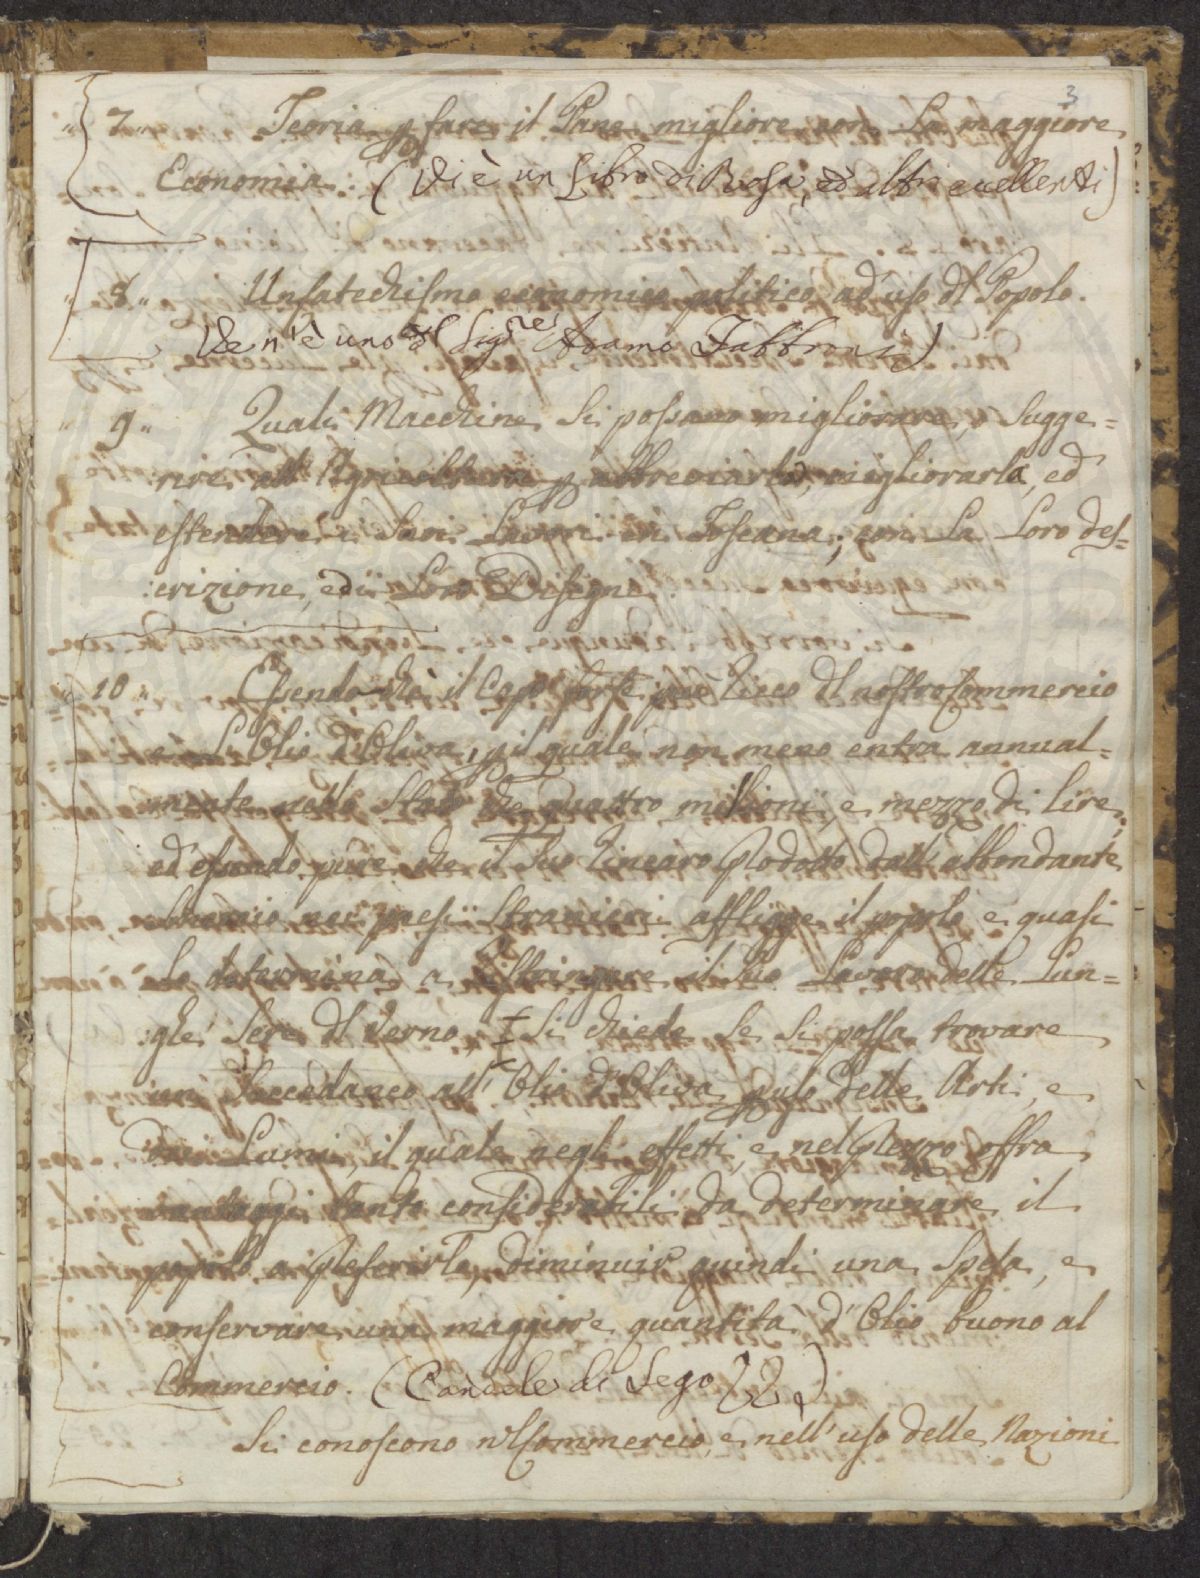 3
" 7 " Teoria p fare il Pane migliore con La maggiore
Economia. (Vi è un Libro di , ed altri eccellenti)
" 8 " Un Catechismo economico politico ad uso dl Popolo.
Ve n'è uno dl Sigre Adamo Fabbroni)
" 9 " Quali Macchine Si possano migliorare, o Sugge=
rire all'Agricoltura p abbreviarla, migliorarla, ed
estendere i Suoi Lavori in Toscana; con La Loro des=
:crizione, ed il Loro Disegno.
" 10 " Essendo che il Capo forse più ricco dl nostro Commercio
e L'Olio d'Oliva, p il quale non meno entra annual=
mente nello Stato che quattro millioni, e mezzo di lire,
ed essendo pure che il Suo rincaro prodotto dall'abbondante
Smercio nei paesi Stranieri affligge il popolo e quasi
Lo determina a ristringere il Suo Lavoro delle Lun=
:ghe Sere dl Verno, Si chiede Se Si possa trovare
un Succedaneo all'Olio d'Oliva p uso delle Arti, e
dei Lumi, il quale negli effetti, e nel prezzo offra
vantaggi tanto considerabili da determinare il
popolo a preferirlo, diminuir quindi una Spesa, e
conservare una maggiore quantità d'Olio buono al
Commercio. (Candele di Sego)
Si conoscono nl Commercio, e nell'uso delle Nazioni